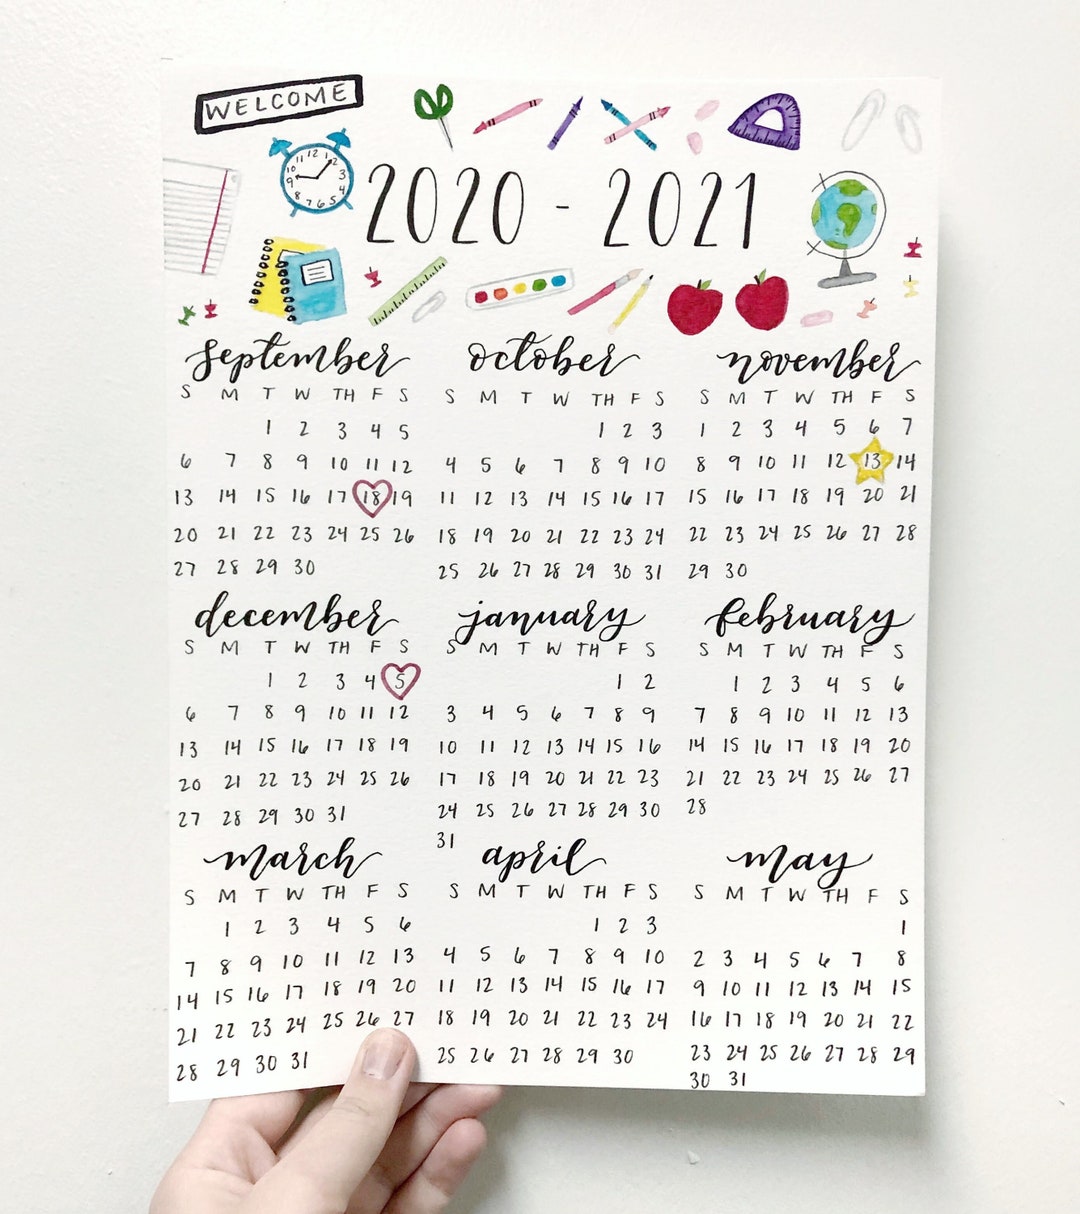 WELCOME
2020 - 2021
september
S M T W TH F S
1 2 3 4 5
6 7 8 9 10 11 12
13 14 15 16 17 18 19
20 21 22 23 24 25 26
27 28 29 30
october
S M T W TH F S
1 2 3
4 5 6 7 8 9 10
11 12 13 14 15 16 17
18 19 20 21 22 23 24
25 26 27 28 29 30 31
november
S M T W TH F S
1 2 3 4 5 6 7
8 9 10 11 12 13 14
15 16 17 18 19 20 21
22 23 24 25 26 27 28
29 30
december
S M T W TH F S
1 2 3 4 5
6 7 8 9 10 11 12
13 14 15 16 17 18 19
20 21 22 23 24 25 26
27 28 29 30 31
january
S M T W TH F S
1 2
3 4 5 6 7 8 9
10 11 12 13 14 15 16
17 18 19 20 21 22 23
24 25 26 27 28 29 30
31
february
S M T W TH F S
1 2 3 4 5 6
7 8 9 10 11 12 13
14 15 16 17 18 19 20
21 22 23 24 25 26 27
28
march
S M T W TH F S
1 2 3 4 5 6
7 8 9 10 11 12 13
14 15 16 17 18 19 20
21 22 23 24 25 26 27
28 29 30 31
april
S M T W TH F S
1 2 3
4 5 6 7 8 9 10
11 12 13 14 15 16 17
18 19 20 21 22 23 24
25 26 27 28 29 30
may
S M T W TH F S
1
2 3 4 5 6 7 8
9 10 11 12 13 14 15
16 17 18 19 20 21 22
23 24 25 26 27 28 29
30 31